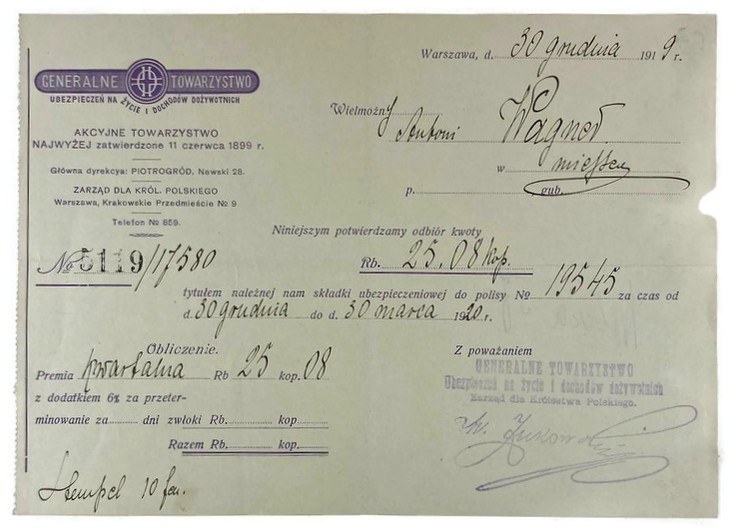 Warszawa, d. 30 grudnia 1919 r.
GENERALNE TOWARZYSTWO
UBEZPIECZEŃ NA ŻYCIE I DOCHODÓW DOŻYWOTNICH
AKCYJNE TOWARZYSTWO
NAJWYŻEJ zatwierdzone 11 czerwca 1899 r.
Główna dyrekcya: PIOTROGRÓD, Newski 28.
ZARZĄD DLA KRÓL. POLSKIEGO
Warszawa, Krakowskie Przedmieście № 9
Telefon № 859.
Wielmożny Antoni Wagner
w miejscu
p. gub.
№ 5119/17580
Niniejszym potwierdzamy odbiór kwoty
Rb. 25.08 kop.
tytułem należnej nam składki ubezpieczeniowej do polisy № 19545 za czas od
d. 30 grudnia do d. 30 marca 1920 r.
Obliczenie.
Premia kwartalna Rb 25 kop. 08
z dodatkiem 6% za przeter-
minowanie za dni zwłoki Rb. kop.
Razem Rb. kop.
Stempel 10 fen.
Z poważaniem
GENERALNE TOWARZYSTWO
Ubezpieczeń na życie i dochodów dożywotnich
Zarząd dla Królestwa Polskiego.